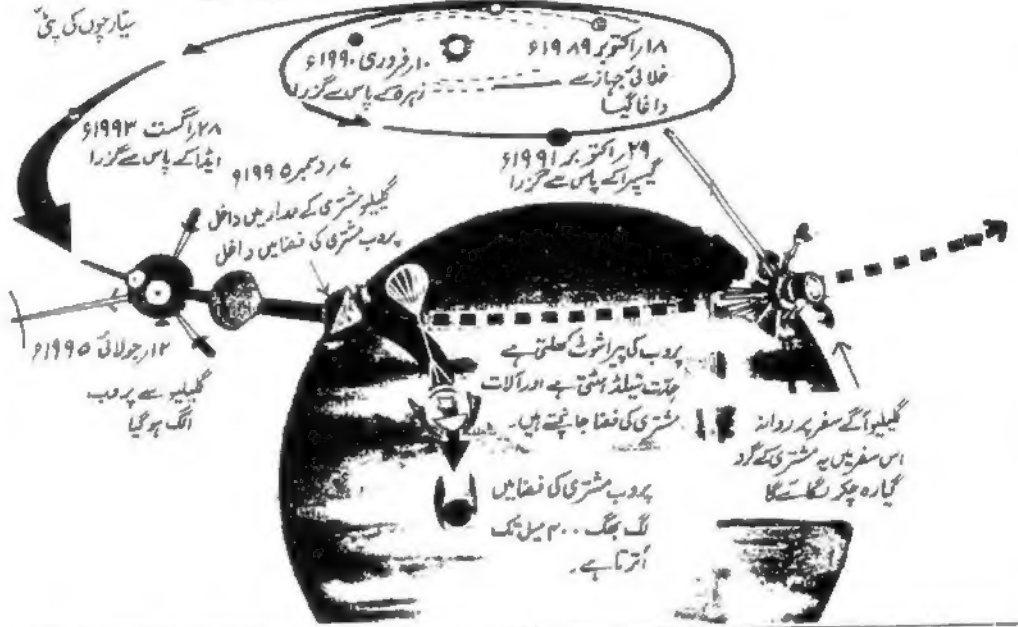 سیارچوں کی پٹی
۱۸ر اکتوبر ۱۹۸۹ء
خلائی جہاز سے
داغا گیا
۱۰ر فروری ۱۹۹۰ء
زہرہ کے پاس سے گزرا
۲۹ر اکتوبر ۱۹۹۱ء
گیسپرا کے پاس سے گزرا
۲۸ر اگست ۱۹۹۳ء
ایڈا کے پاس سے گزرا
۷ر دسمبر ۱۹۹۵ء
گلیلیو مشتری کے مدار میں داخل
پروب مشتری کی فضا میں داخل
۱۲ر جولائی ۱۹۹۵ء
گلیلیو سے پروب
الگ ہوگیا
پروب کی پیراشوٹ کھلتی ہے
حدت شیلڈ ہٹتی ہے اور آلات
مشتری کی فضا جانچتے ہیں۔
پروب مشتری کی فضا میں
لگ بھگ ۴۰۰ میل تک
اُترتا ہے۔
گلیلیو آگے سفر پر روانہ
اس سفر میں یہ مشتری کے گرد
گیارہ چکر لگائے گا